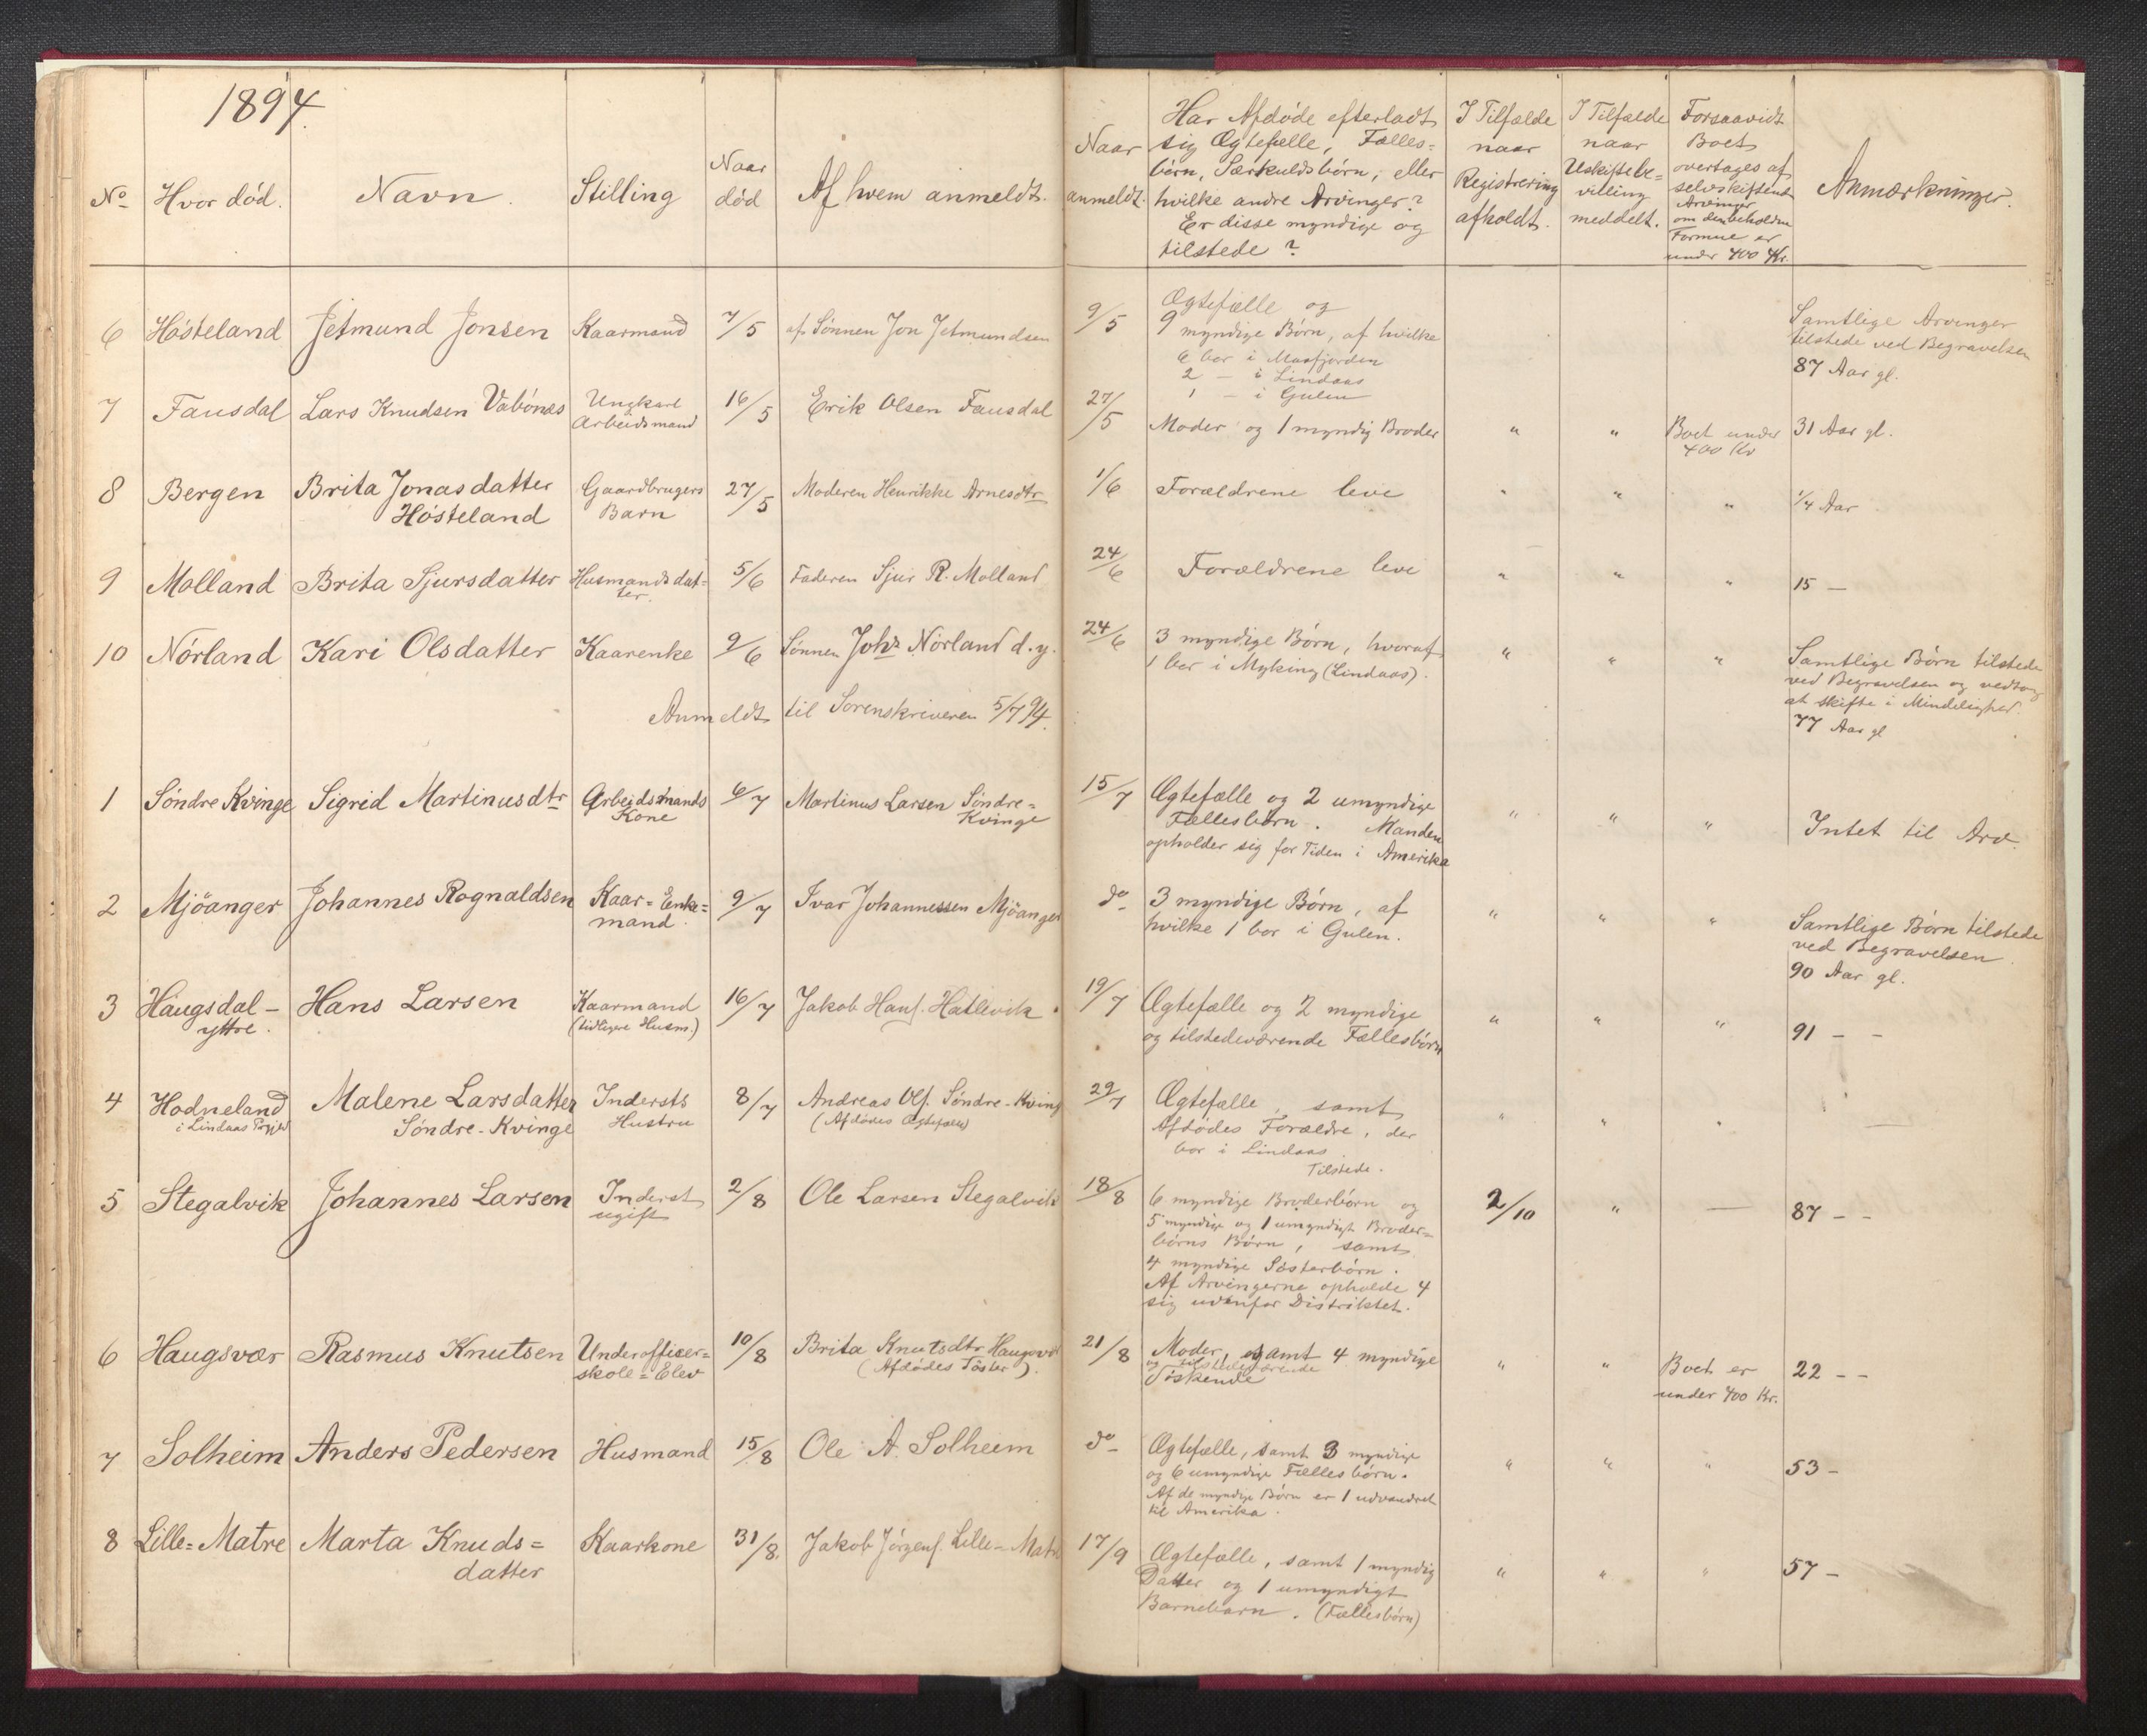 1894.
No Hvor død. Navn. Stilling Naar død Af hvem anmeldt.
Naar anmeldt.
Har Afdøde efterladt
sig Ægtefælle, Fælles=
børn, Særkuldsbørn, eller
hvilke andre Arvinger?
Er disse myndige og
tilstede?
I Tilfælde
naar
Registrering
afholdt.
I Tilfælde
naar
Uskiftebe=
villing
meddelt.
Forsaavidt
Boet
overtages af
selvskiftende
Arvinger
om den beholdne
Formue er
under 400 Kr.
Anmærkninger.
6 Høsteland Jetmund Jonsen Kaarmand 7/5 af Sønnen Jon Jetmundsen 9/5
Ægtefælle og
9 myndige Børn, af hvilke
6 bor i Masfjorden
2 – i Lindaas
1 – i Gulen
Samtlige Arvinger
tilstede ved Begravelsen
87 Aar gl.
7 Fausdal Lars Knudsen Vabønæs Ungkarl
Arbeidsmand
16/5 Erik Olsen Fausdal 27/5 Moder og 1 myndig Broder " " Boet under
400 Kr
31 Aar gl.
8 Bergen Brita Jonasdatter
Høsteland
Gaardbrugers
Barn
27/5 Moderen Henrikke Arnesdtr 1/6 Forældrene leve " " " 1/4 Aar
9 Molland Brita Sjursdatter Husmandsdat=
ter.
5/6 Faderen Sjur R. Molland 24/6 Forældrene leve " " " 15 –
10 Nørland Kari Olsdatter Kaarenke 9/6 Sønnen Johs Nørland d.y. 24/6
3 myndige Børn, hvoraf
1 bor i Myking (Lindaas).
" " "
Samtlige Børn tilstede
ved Begravelsen og vedtog
at skifte i Mindelighed.
77 Aar gl
Anmeldt til Sorenskriveren 5/7 94.
1 Søndre Kvinge Sigrid Martinusdtr Arbeidsmands
Kone
6/7 Martinus Larsen Søndre=
Kvinge
15/7 Ægtefælle og 2 umyndige
Fællesbørn. Manden
opholder sig for Tiden i Amerika
" " " Intet til Arv.
2 Mjöanger Johannes Rognaldsen Kaar= Enke=
mand.
9/7 Ivar Johannessen Mjöanger do
3 myndige Børn, af
hvilke 1 bor i Gulen.
" " "
Samtlige Børn tilstede
ved Begravelsen.
90 Aar gl.
3 Haugsdal –
yttre.
Hans Larsen Kaarmand
(tidligere Husm.)
16/7 Jakob Hans. Hatlevik 19/7
Ægtefælle og 2 myndige
og tilstedeværende Fællesbørn
" " " 91 – –
4 Hodneland
i Lindaas Prgjd
Malene Larsdatter
Søndre-Kvinge
Indersts
Hustru
8/7 Andreas Ols. Søndre-Kving
(Afdødes Ægtefælle)
29/7 Ægtefælle, samt
Afdødes Forældre, der
bor i Lindaas
Tilstede.
" " " –
5 Stegalvik Johannes Larsen Inderst
ugift
2/8 Ole Larsen Stegalvik 18/8
6 myndige Broderbørn og
5 myndige og 1 umyndigt Broder=
børns Børn, samt
4 myndige Søsterbørn.
Af Arvingerne opholde 4
sig udenfor Distriktet.
2/10 " – 87 – –
6 Haugsvær Rasmus Knutsen Underofficer=
skole=Elev
10/8 Brita Knutsdtr Haugsvær
(Afdødes Søster).
21/8 Moder, samt 4 myndige
og tilstedeværende
Søskende
" " Boet er
under 400 Kr.
22 – –
7 Solheim Anders Pedersen Husmand 15/8 Ole A. Solheim do
Ægtefælle, samt 3 myndige
og 6 umyndige Fællesbørn.
Af de myndige Børn er 1 udvandret
til Amerika.
" " " 53 –
8 Lille=Matre Marta Knuds=
datter
Kaarkone 31/8. Jakob Jørgens. Lille=Matre 17/9
Ægtefælle, samt 1 myndig
Datter og 1 umyndigt
Barnebarn. (Fællesbørn)
" " " 57 –